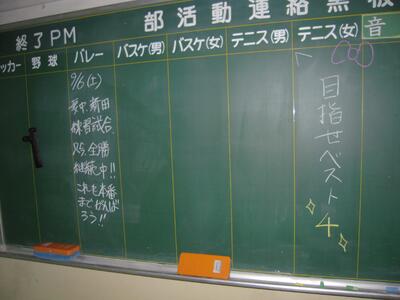 部活動連絡黒板
終了PM
ッカー 野球 バレー バスケ(男) バスケ(女) テニス(男) テニス(女) 音
9/6(土)
新田
練習試合.
全勝
継続中!!
これを本番
までがんば
ろう!!
目指せベスト4